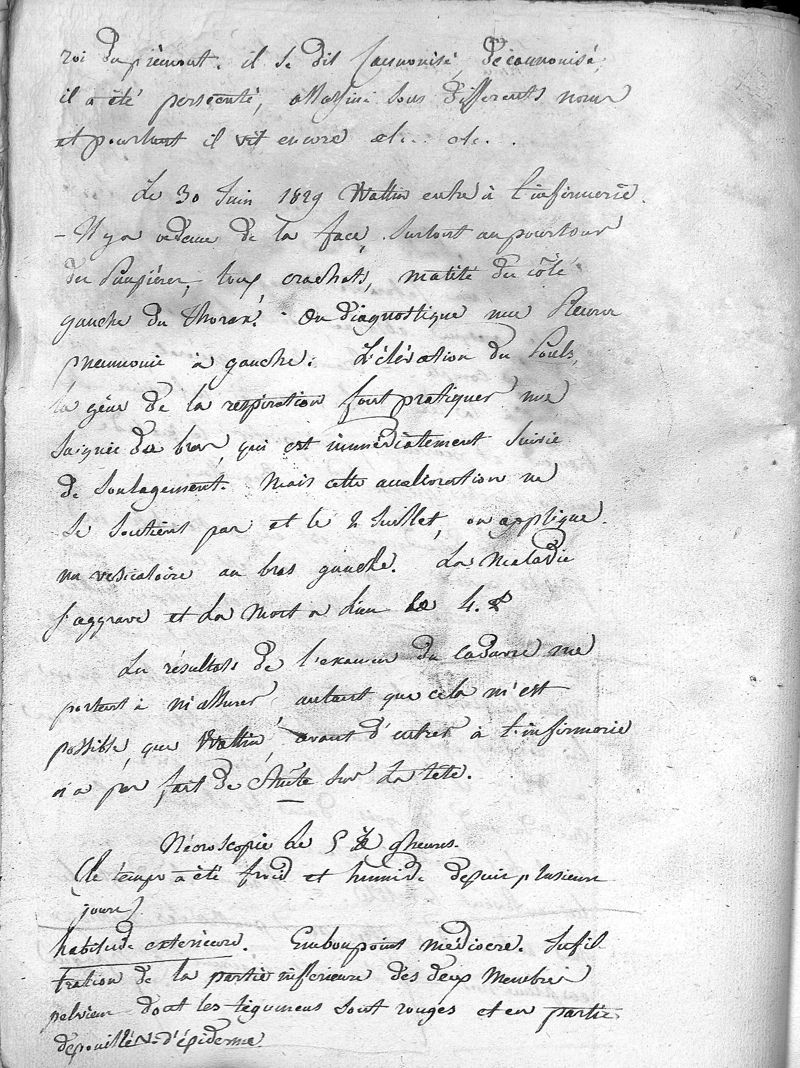 roi du piémont. il se dit Cannonisé, décannonisé,
il a été persécuté, assassiné sous differents noms
et pourtant il vit encore etc. etc.
Le 30 Juin 1829 Wattin entre à l'infirmerie.
– Il y a oedeme de la face, surtout au pourtour
des Paupières, toux, crachats, matité du côté
gauche du thorax. On diagnostique une Pleuro
pneumonie à gauche. L'élévation du Pouls,
la gêne de la respiration font pratiquer une
saignée du bras, qui est immédiatement suivie
de soulagement. Mais cette amélioration ne
se soutient pas et le 2 Juillet, on applique
un vesicatoire au bras gauche. La Maladie
s'aggrave et la Mort a lieu le 4.
Les résultats de l'examen du cadavre me
portent à m'assurer, autant que cela m'est
possible, que Wattin, avant d'entrer à l'infirmerie
n'a pas fait de chute sur la tête.
Nécroscopie le 5 9 heures.
(le temps a été froid et humide depuis plusieurs
jours)
habitude extérieure. Embonpoint médiocre. Infil
tration de la partie infferieure des deux Membres
pelviens dont les tégumens sont rouges et en partie
dépouillés d'épiderme.